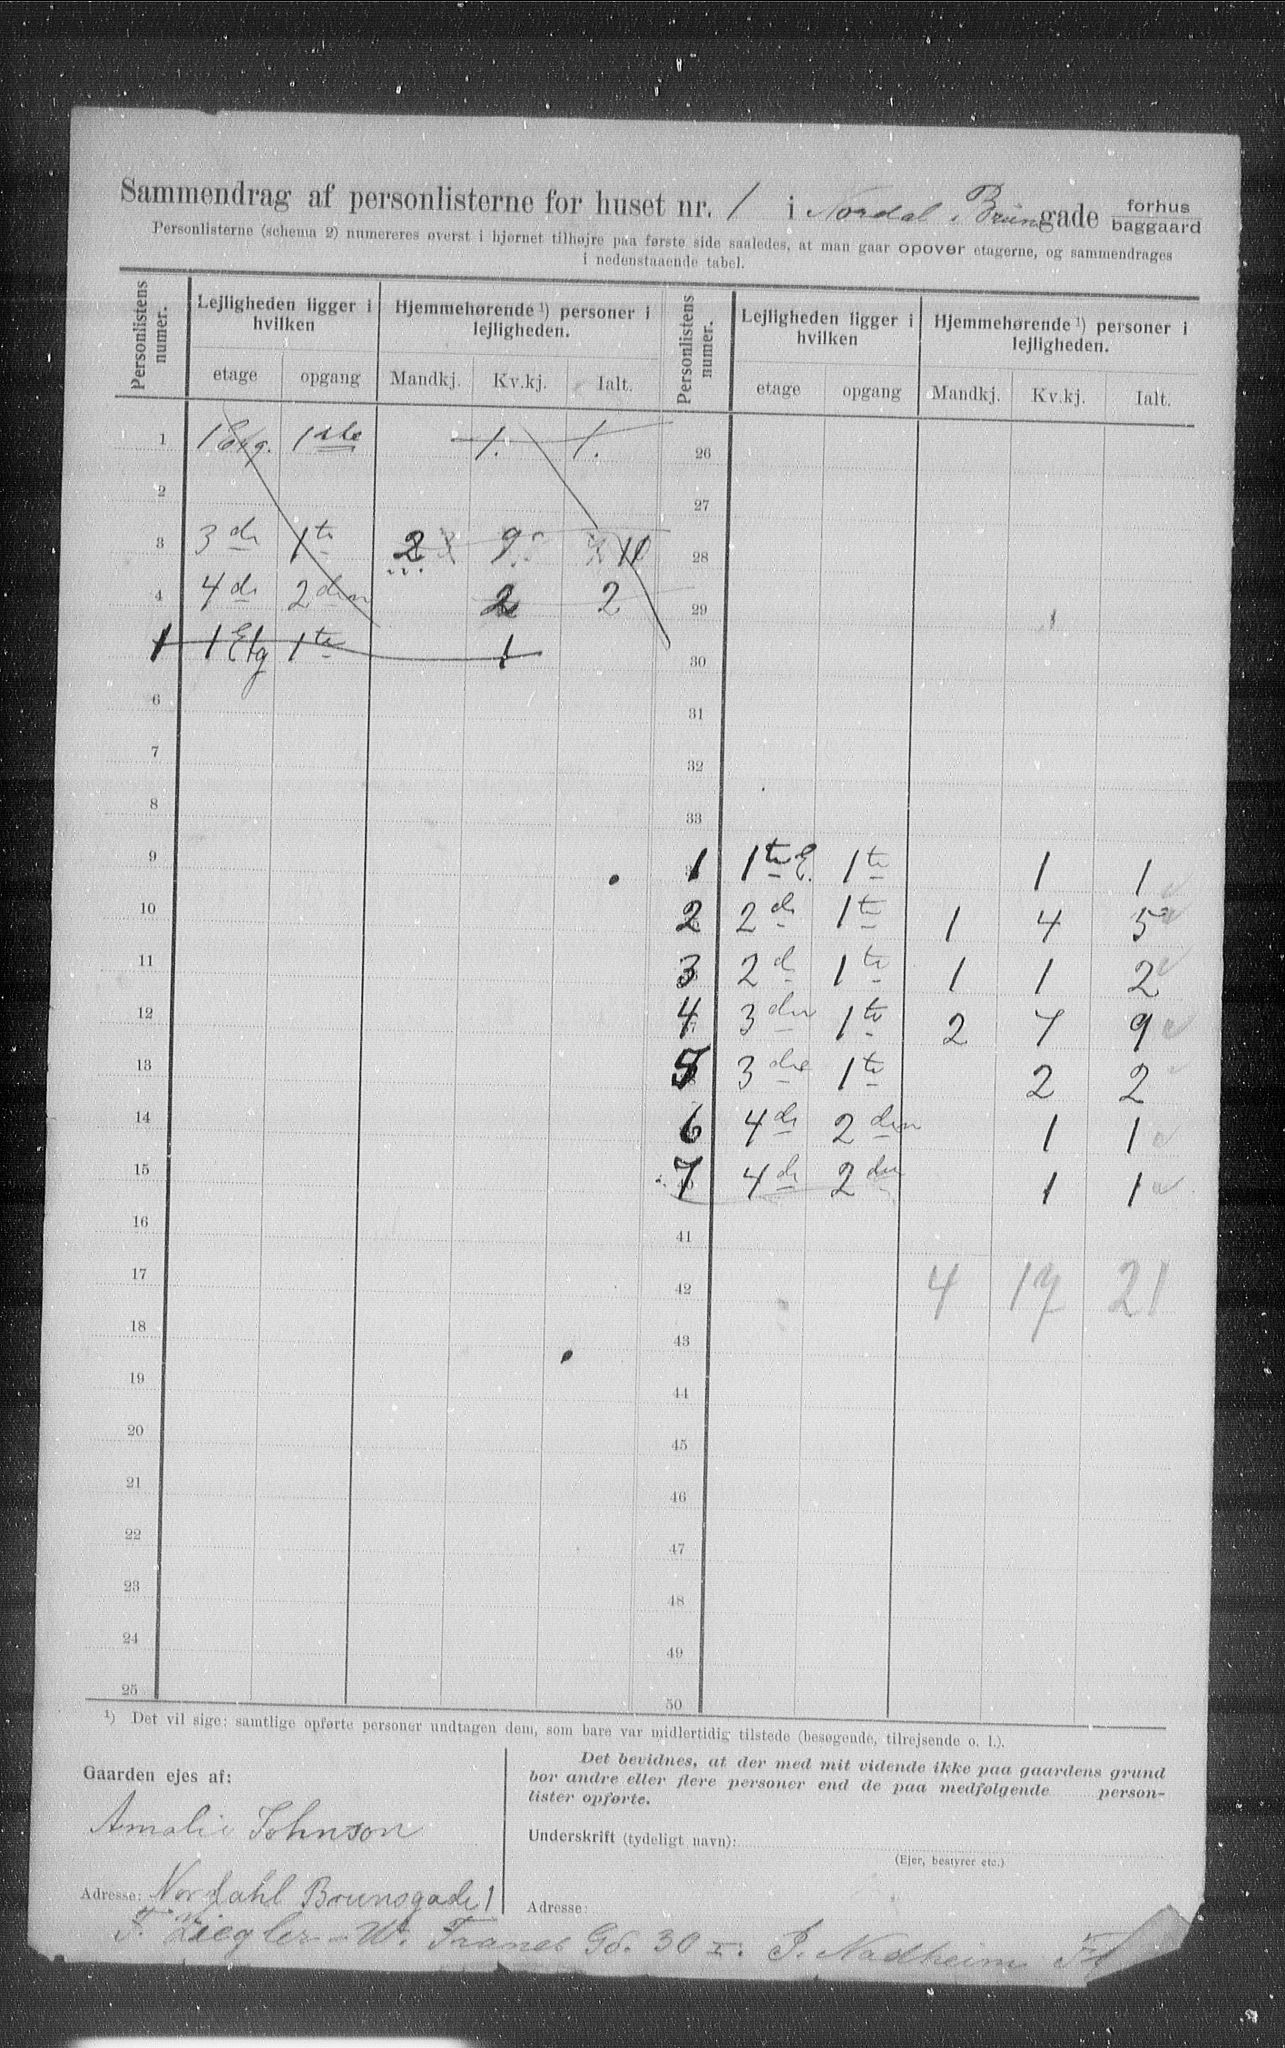 Sammendrag af personlisterne for huset nr. 1 i Nordal Brunsgade forhus
baggaard
Personlisterne (schema 2) numereres øverst i hjørnet tilhøjre paa første side saaledes, at man gaar opover etagerne, og sammendrages
i nedenstaaende tabel.
Personlistens numer. Lejligheden ligger i hvilken Hjemmehørende ¹) personer i lejligheden. Personlistens numer. Lejligheden ligger i hvilken Hjemmehørende ¹) personer i lejligheden.
etage opgang Mandkj. Kv.kj. Ialt. etage opgang Mandkj. Kv.kj. Ialt.
1 1 Etg. 1ste 1. 1. 26
2 27
3 3die 1te 2 9 11 28
4 4de 2den 2 2 29
1 1 Etg 1te 1 30
6 31
7 32
8 33
9 1 1te E. 1te 1 1
10 2 2de 1te 1 4 5
11 3 2de 1te 1 1 2
12 4 3die 1te 2 7 9
13 5 3die 1te 2 2
14 6 4de 2den 1 1
15 7 4de 2den 1 1
16 41
17 42 4 17 21
18 43
19 44
20 45
21 46
22 47
23 48
24 49
25 50
¹) Det vil sige: samtlige opførte personer undtagen dem, som bare var midlertidig tilstede (besøgende, tilrejsende o. l.).
Gaarden ejes af:
Amalie Johnson
Adresse: Nordahl Brunsgade 1
Det bevidnes, at der med mit vidende ikke paa gaardens grund
bor andre eller flere personer end de paa medfølgende person-
lister opførte.
Underskrift (tydeligt navn):
(Ejer, bestyrer etc.)
Adresse:
F. Ziegler - W. Tranes Gd. 30 I. J. Nadheim